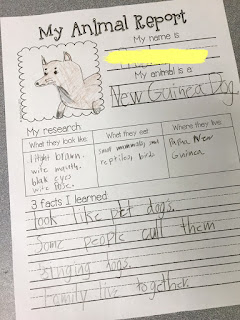 My Animal Report
My name is
My animal is a
New Guinea Dog
My research
What they look like
What they eat
Where they live
light brawn.
wite mouth.
blak eyes
wite tose.
small mammals, and
reptiles, birds
Papua New
Guinea
3 facts I learned
look like pet dogs.
Some people call them
singing dogs.
Family live together.